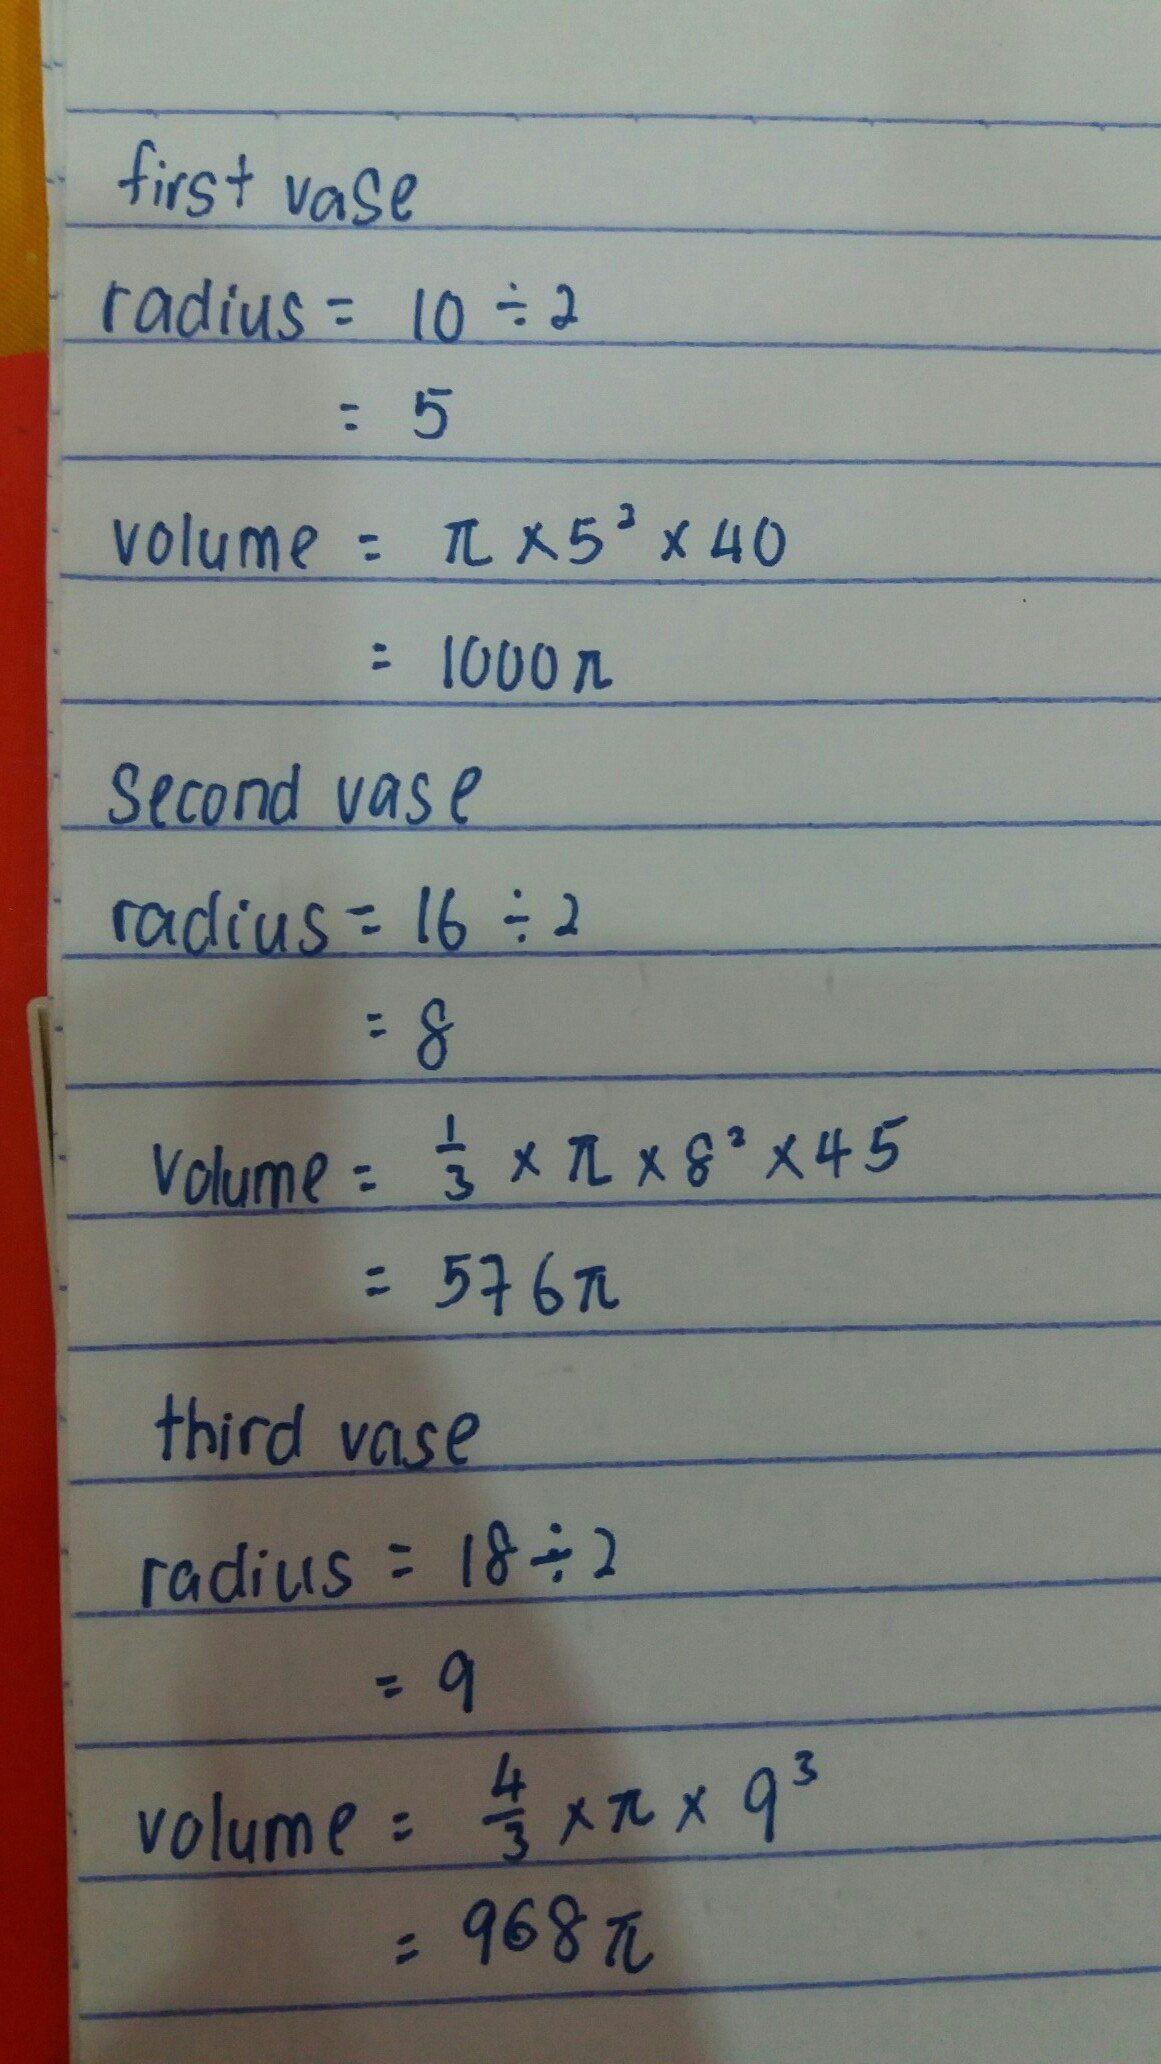 first vase
radius = 10 ÷ 2
= 5
volume = π × 5² × 40
= 1000π
second vase
radius = 16 ÷ 2
= 8
volume = 1/3 × π × 8² × 45
= 576π
third vase
radius = 18 ÷ 2
= 9
volume = 4/3 × π × 9³
= 968π